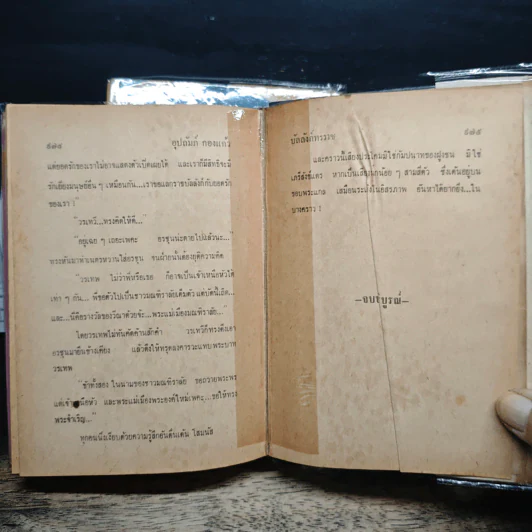 ๕๗๔ อุปถัมภ์ กองแก้ว
แต่ยอดรักของเราไม่อาจแสดงตัวเปิดเผยได้ และเราก็มีสิทธิจะมี
รักเยี่ยงมนุษย์อื่น ๆ เหมือนกัน...เราขอแลกราชบัลลังก์กับยอดรัก
ของเรา !”
“วรเทวี...ทรงคิดให้ดี...”
“อยู่เฉย ๆ เถอะเพคะ อรชุนน่ะตายไปแล้วนะ...”
“วรเทพ ไม่ว่าพี่หรือเธอ ก็อาจเป็นเจ้าเหนือหัวได้
เท่า ๆ กัน... พี่ขอตัวไปเป็นชาวมณฑิราลัยเต็มตัว แต่บัดนี้เถิด...
และ...นี่คือรางวัลของวีณาด้วยจ้ะ...พระแม่เมืองมณฑิราลัย...”
โดยวรเทพไม่ทันคัดค้านสักคำ วรเทวีก็ทรงดึงเอา
อรชุนมายืนข้างเคียง แล้วดึงให้ทรุดองค์ถวายบังคมแทบพระบาท
วรเทพ
“ข้าทั้งสอง ในนามของชาวมณฑิราลัย ขอถวายพระพร
แด่เจ้าเหนือหัว และพระแม่เมืองพระองค์ใหม่เพคะ...ขอให้ทรง
พระสำเริญ...”
ทุกคนนิ่งเงียบด้วยความรู้สึกอันตื่นเต้น โสมนัส
๕๗๕
บัลลังก์ทรราช
และคราวนี้เสียงประโคมมิใช่กัมปนาทของฝูงชน มิใช่
เภรีสังข์แตร หากเป็นเสียงนกน้อย ๆ สามสี่ตัว ซึ่งเต้นอยู่บน
ขอบพระแกล เหมือนระฆังในอิสรภาพ อันหาได้ยากยิ่ง...ใน
บางคราว !
—จบบริบูรณ์—